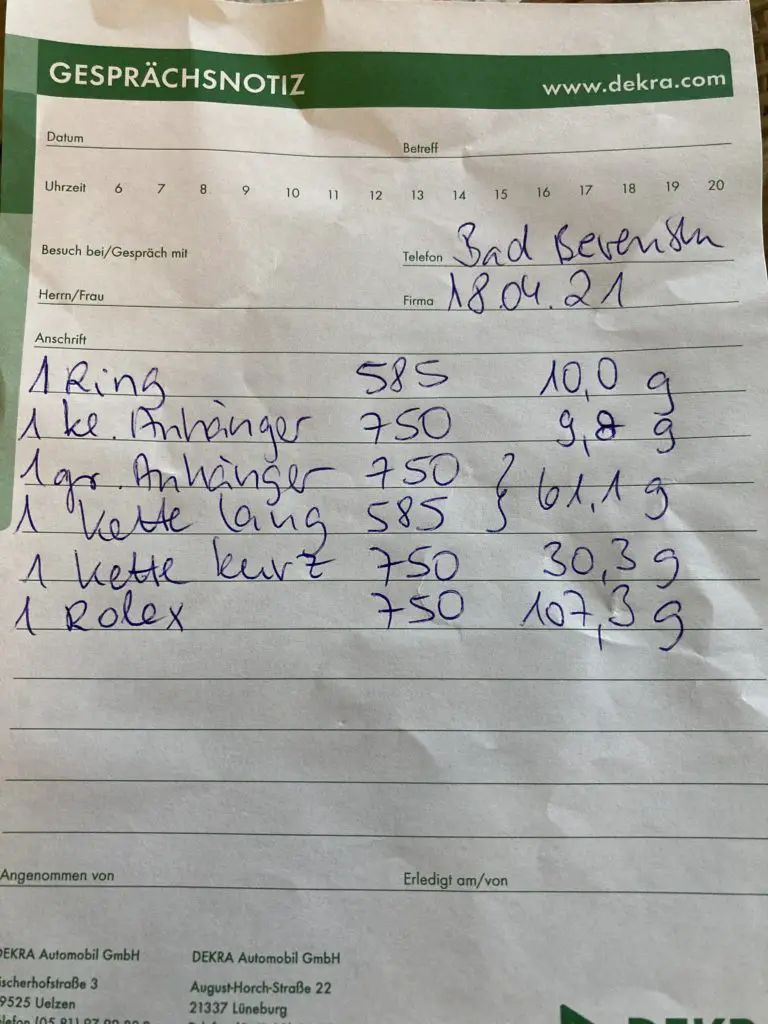 GESPRÄCHSNOTIZ www.dekra.com
Datum Betreff
Uhrzeit 6 7 8 9 10 11 12 13 14 15 16 17 18 19 20
Besuch bei/Gespräch mit Telefon Bad Bevensen
Herrn/Frau Firma 18.04.21
Anschrift
1 Ring 585 10,0 g
1 kl. Anhänger 750 9,8 g
1 gr. Anhänger 750
1 Kette lang 585 } 61,1 g
1 Kette kurz 750 30,3 g
1 Rolex 750 107,3 g
Angenommen von Erledigt am/von
DEKRA Automobil GmbH DEKRA Automobil GmbH
ischerhofstraße 3 August-Horch-Straße 22
9525 Uelzen 21337 Lüneburg